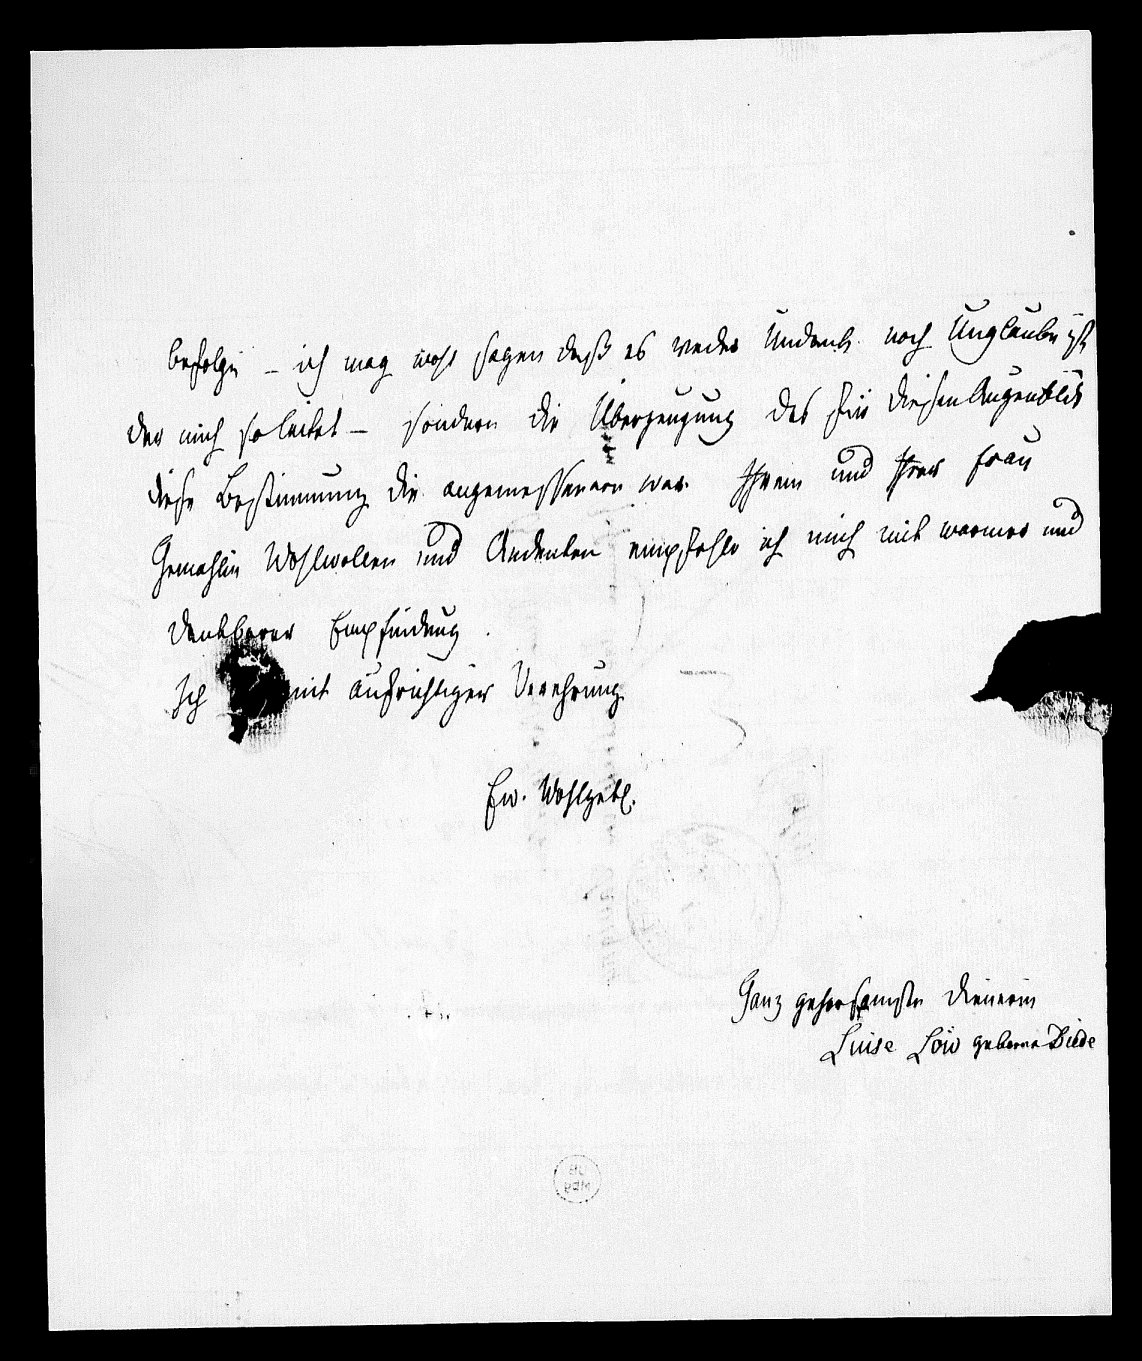 befolge – ich mag wohl sagen daß es weder Undank noch Unglaube ist
der mich so leitet – sondern die Überzeugung das für diesen Augenblik
diese Bestimmung die angemessenere war. Ihrem und Ihrer Frau
Gemahlin Wohlwollen und Andenken empfehle ich mich mit warmer und
dankbarer Empfindung.
Ich mit aufrichtiger Verehrung
Ew. Wohlgeb.
Ganz gehorsamste Dienerin
Luise Löw geborne Diede